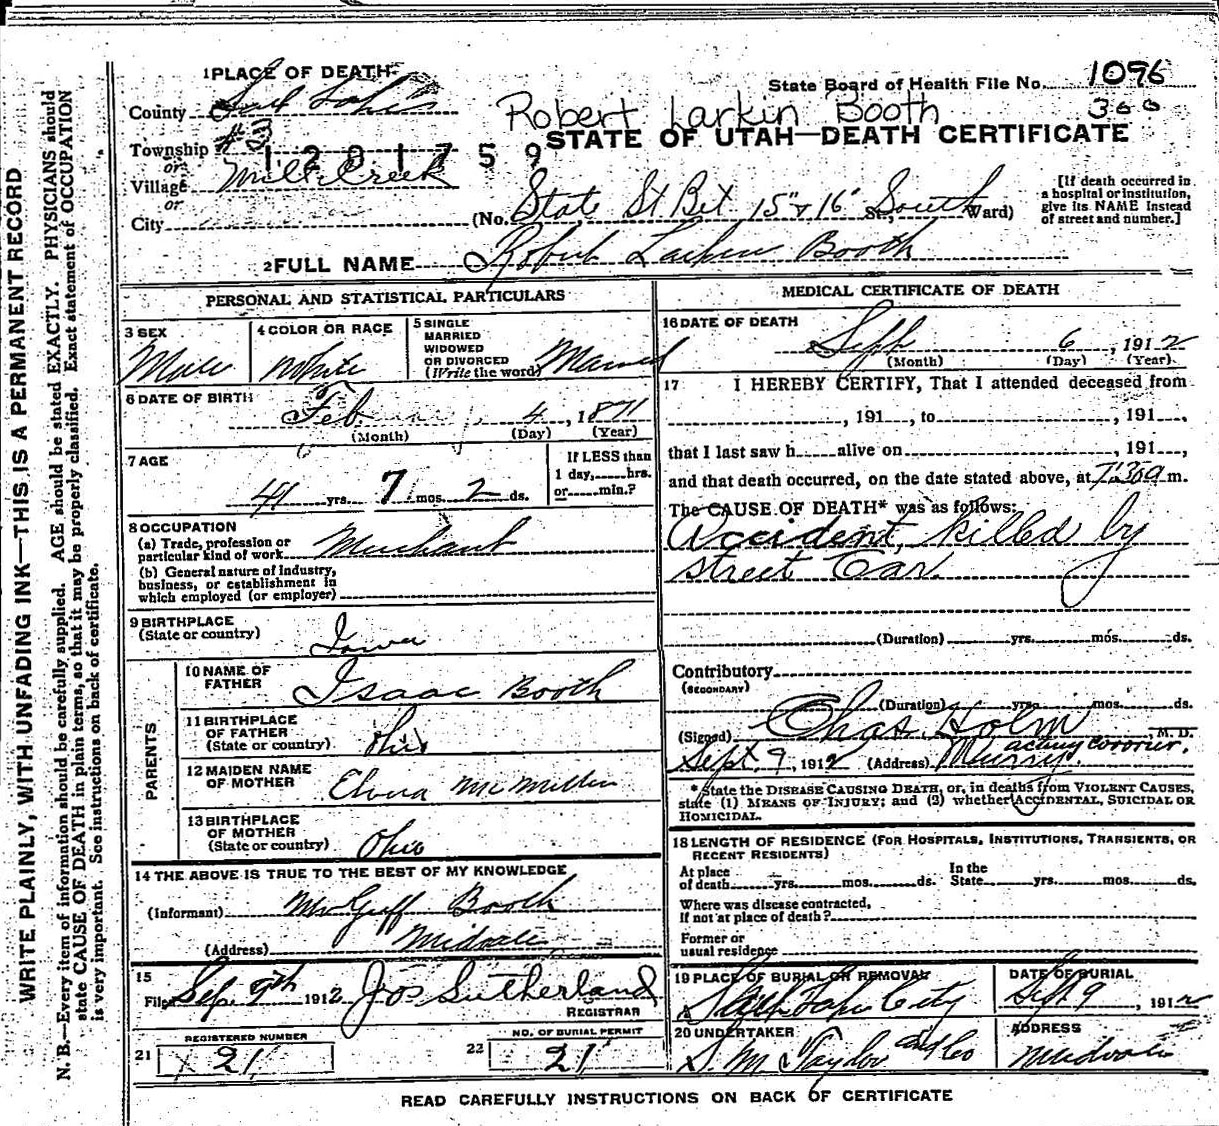 1 PLACE OF DEATH
State Board of Health File No. 1096
County Salt Lake
Robert Larkin Booth 300
STATE OF UTAH—DEATH CERTIFICATE
Township #3
1201759
or
Village Mill Creek
or
City
(No. State St Bet 15" & 16" St., South Ward)
[If death occurred in a hospital or institution, give its NAME instead of street and number.]
2 FULL NAME Robert Larkin Booth
PERSONAL AND STATISTICAL PARTICULARS
3 SEX
Male
4 COLOR OR RACE
White
5 SINGLE
MARRIED
WIDOWED
OR DIVORCED
(Write the word) Married
6 DATE OF BIRTH
Feb. 4, 1871
(Month) (Day) (Year)
7 AGE
41 yrs. 7 mos. 2 ds.
If LESS than
1 day,......hrs.
or......min.?
8 OCCUPATION
(a) Trade, profession or
particular kind of work Merchant
(b) General nature of industry,
business, or establishment in
which employed (or employer)
9 BIRTHPLACE
(State or country) Iowa
PARENTS
10 NAME OF
FATHER Isaac Booth
11 BIRTHPLACE
OF FATHER
(State or country) Ohio
12 MAIDEN NAME
OF MOTHER Elvira McMillen
13 BIRTHPLACE
OF MOTHER
(State or country) Ohio
14 THE ABOVE IS TRUE TO THE BEST OF MY KNOWLEDGE
(Informant) Booth
(Address) Midvale
15
Filed Sep. 9th 1912 Jos Sutherland
REGISTRAR
REGISTERED NUMBER
21 21
NO. OF BURIAL PERMIT
22 21
MEDICAL CERTIFICATE OF DEATH
16 DATE OF DEATH
Sept 6, 1912
(Month) (Day) (Year)
17 I HEREBY CERTIFY, That I attended deceased from
, 191 , to , 191 ,
that I last saw h alive on , 191 ,
and that death occurred, on the date stated above, at 7:30 a m.
The CAUSE OF DEATH* was as follows:
Accident, killed by
street Car.
(Duration) yrs. mos. ds.
Contributory
(SECONDARY)
(Duration) yrs. mos. ds.
(Signed) Chas Holm, M. D.
acting coroner.
Sept 9, 1912 (Address) Murray.
* State the DISEASE CAUSING DEATH, or, in deaths from VIOLENT CAUSES,
state (1) MEANS OF INJURY; and (2) whether ACCIDENTAL, SUICIDAL OR
HOMICIDAL.
18 LENGTH OF RESIDENCE (FOR HOSPITALS, INSTITUTIONS, TRANSIENTS, OR
RECENT RESIDENTS)
At place
of death yrs. mos. ds.
In the
State yrs. mos. ds.
Where was disease contracted,
if not at place of death?
Former or
usual residence
19 PLACE OF BURIAL OR REMOVAL
Salt Lake City
DATE OF BURIAL
Sept 9, 1912
20 UNDERTAKER
S. M. Taylor and Co
ADDRESS
Midvale
READ CAREFULLY INSTRUCTIONS ON BACK OF CERTIFICATE
WRITE PLAINLY, WITH UNFADING INK—THIS IS A PERMANENT RECORD
N. B.—Every item of information should be carefully supplied. AGE should be stated EXACTLY. PHYSICIANS should
state CAUSE OF DEATH in plain terms, so that it may be properly classified. Exact statement of OCCUPATION
is very important. See instructions on back of certificate.